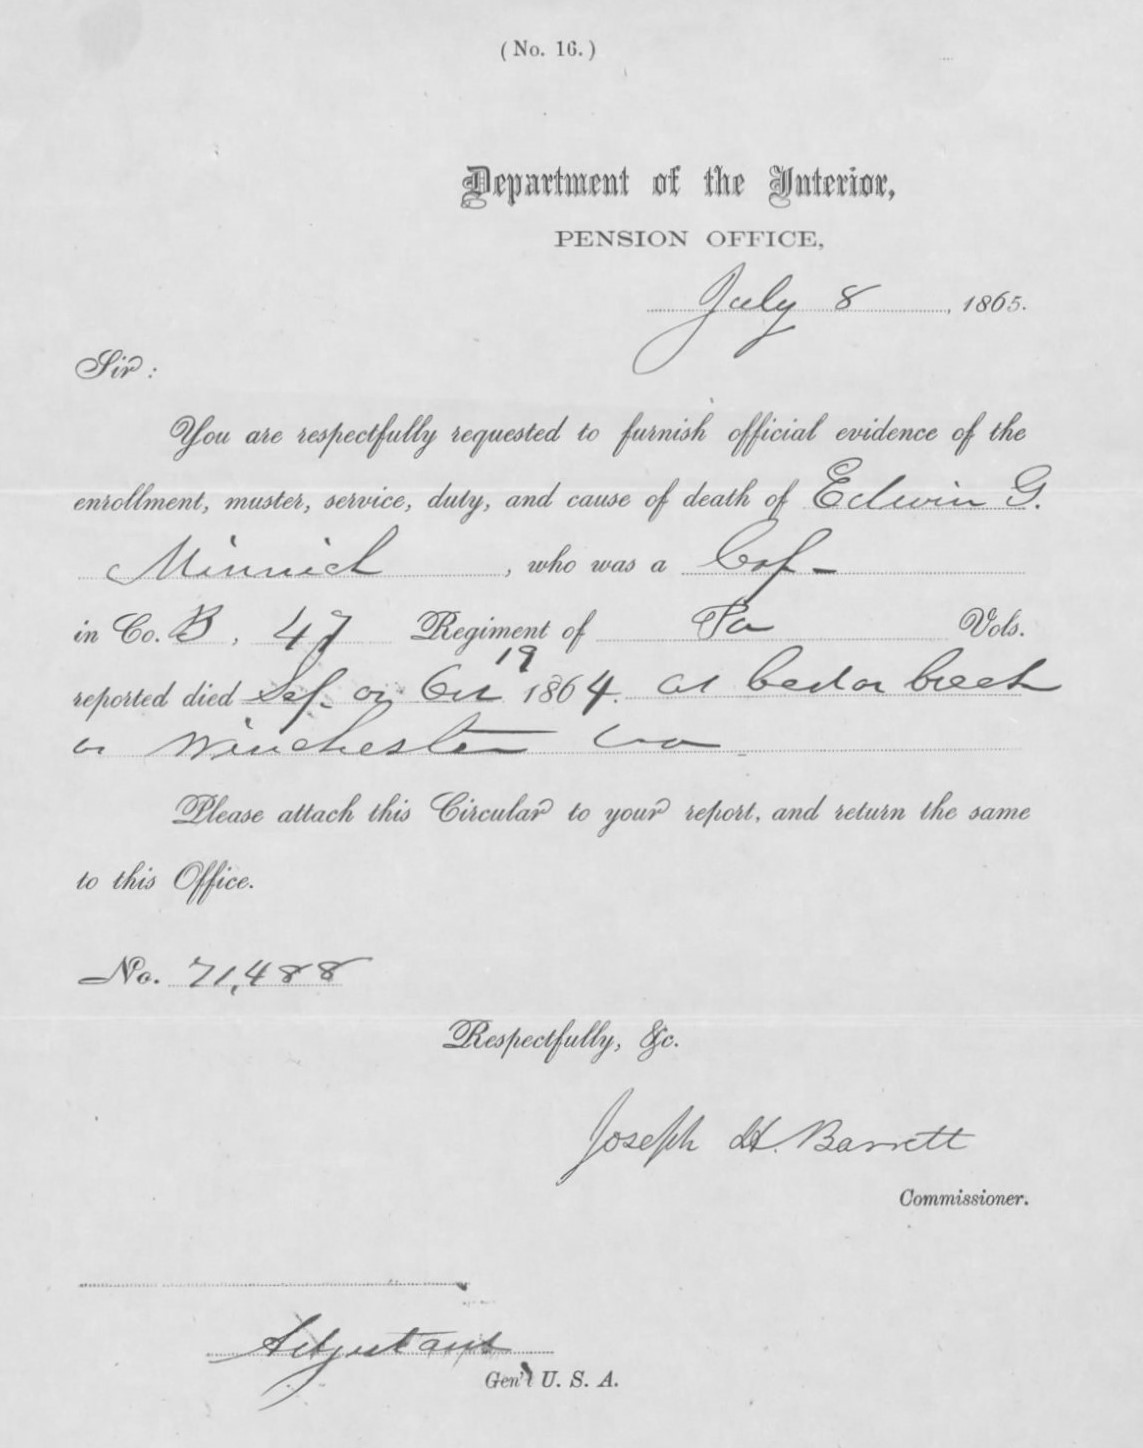 (No. 16.)
Department of the Interior,
PENSION OFFICE,
July 8, 1865.
Sir:
You are respectfully requested to furnish official evidence of the
enrollment, muster, service, duty, and cause of death of Edwin G.
Minnich, who was a Cap-
in Co. B, 47 Regiment of Pa Vols.
19
reported died Sep. or Oct 1864. at Cedar Creek
or Winchester Va
Please attach this Circular to your report, and return the same
to this Office.
No. 71,488
Respectfully, &c.
Joseph H. Barrett
Commissioner.
Adjutant
Gen'l U. S. A.